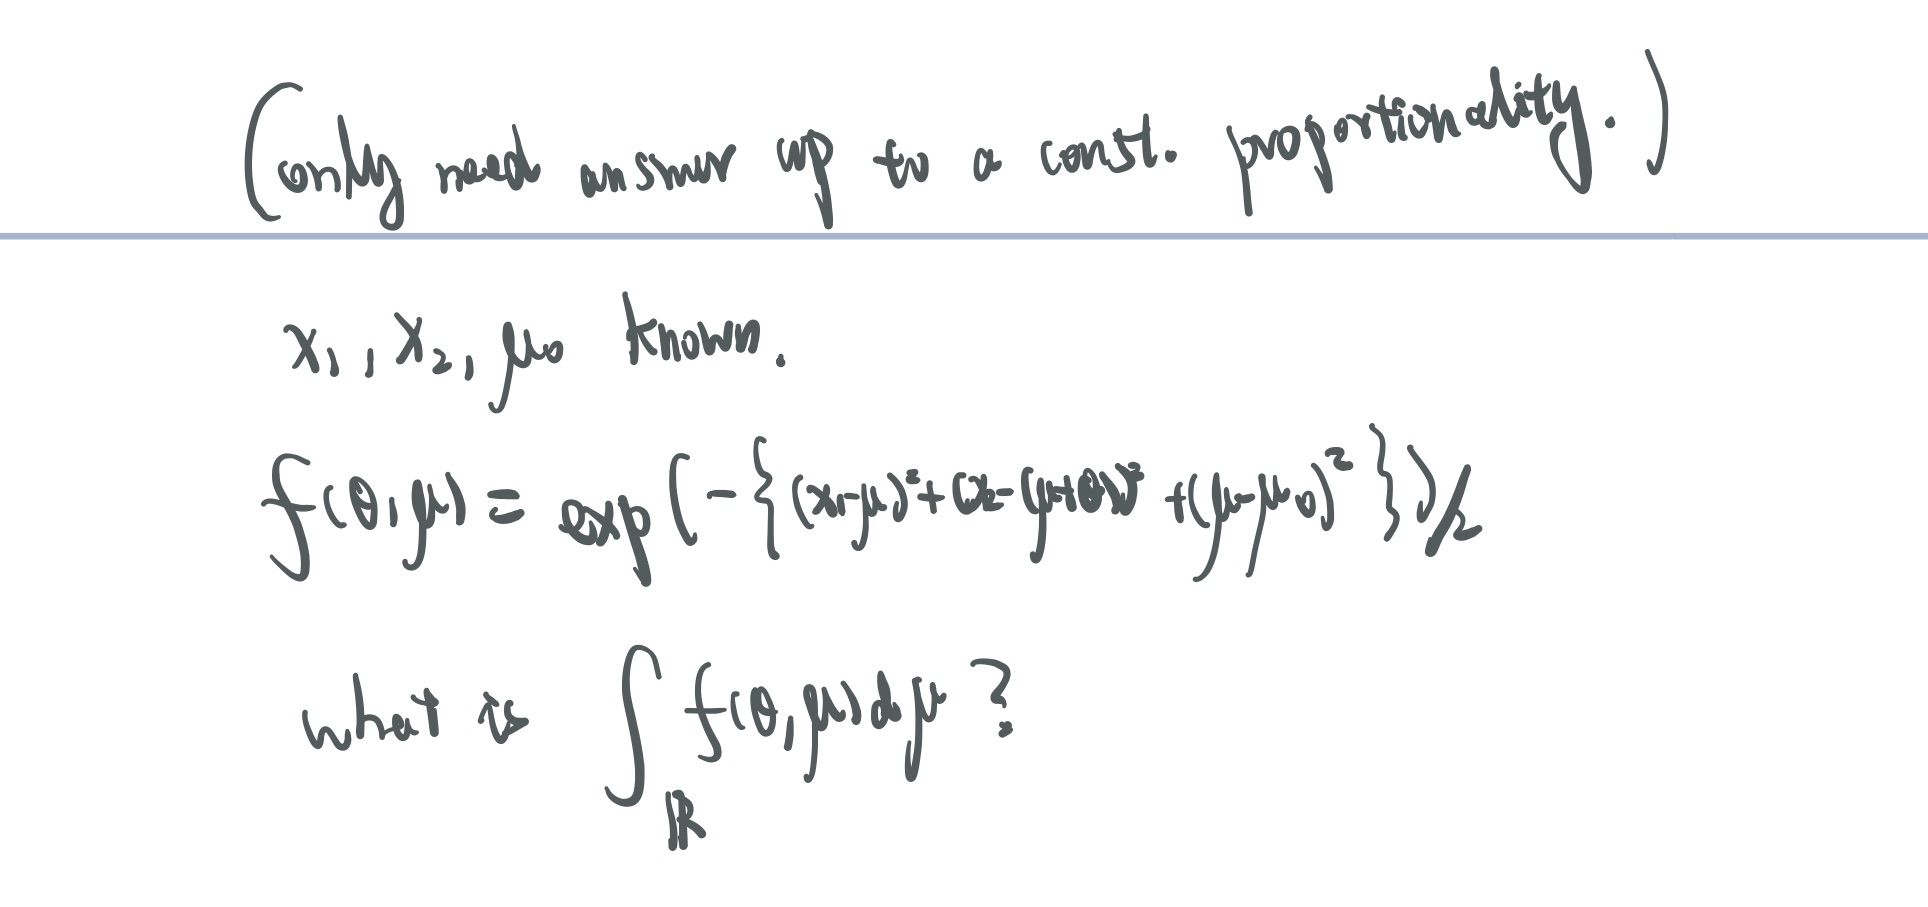 (only need answer up to a const. proportionality.)
x₁, x₂, μ₀ known.
f(θ,μ) = exp(-{(x₁-μ)²+(x₂-(μ+θ))²+(μ-μ₀)²})/2
what is ∫_ℝ f(θ,μ)dμ?